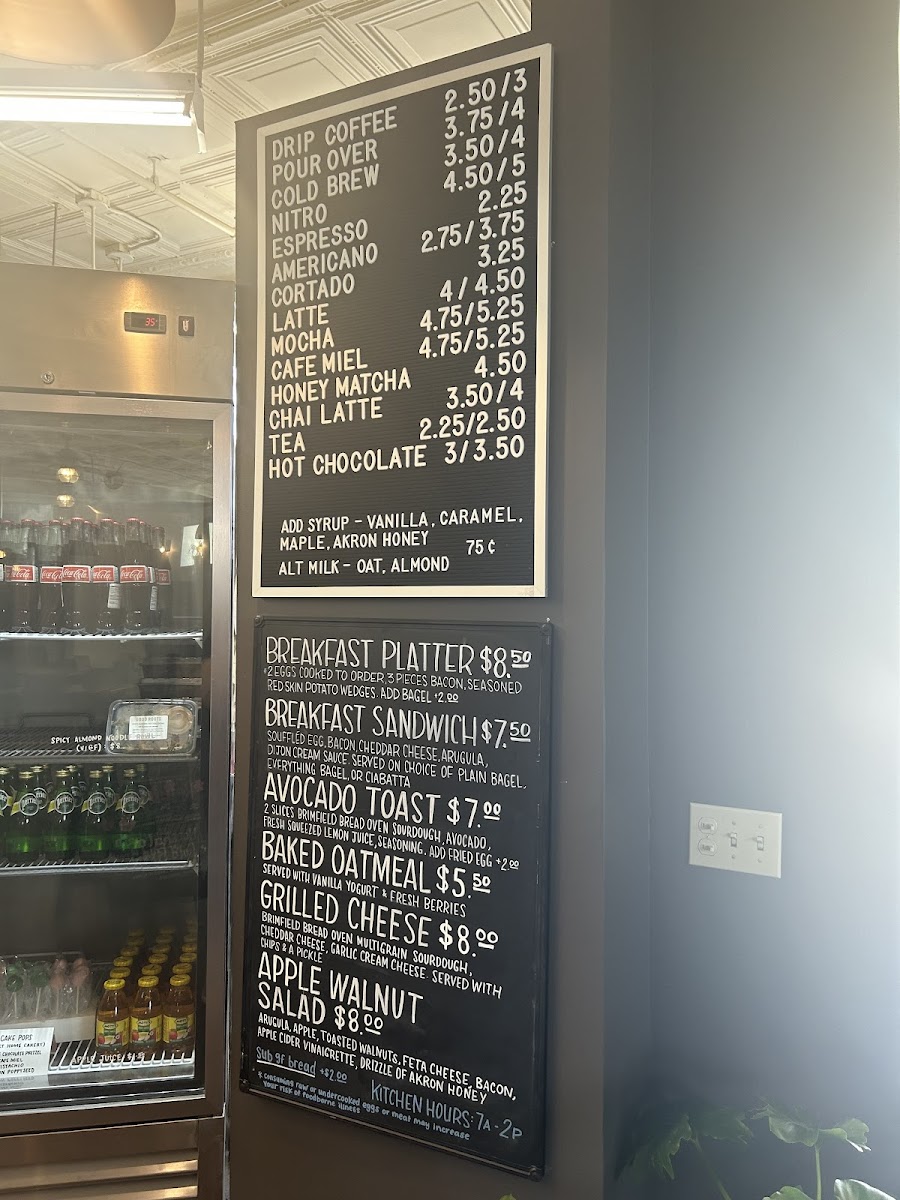 DRIP COFFEE 2.50/3
POUR OVER 3.75/4
COLD BREW 3.50/4
NITRO 4.50/5
ESPRESSO 2.25
AMERICANO 2.75/3.75
CORTADO 3.25
LATTE 4/4.50
MOCHA 4.75/5.25
CAFE MIEL 4.75/5.25
HONEY MATCHA 4.50
CHAI LATTE 3.50/4
TEA 2.25/2.50
HOT CHOCOLATE 3/3.50
ADD SYRUP - VANILLA, CARAMEL,
MAPLE, AKRON HONEY 75¢
ALT MILK - OAT, ALMOND
BREAKFAST PLATTER $8.50
*2 EGGS COOKED TO ORDER, 3 PIECES BACON, SEASONED
REDSKIN POTATO WEDGES. ADD BAGEL +2.00
BREAKFAST SANDWICH $7.50
SOUFFLÉD EGG, BACON, CHEDDAR CHEESE, ARUGULA,
DIJON CREAM SAUCE. SERVED ON CHOICE OF PLAIN BAGEL,
EVERYTHING BAGEL, OR CIABATTA
AVOCADO TOAST $7.00
2 SLICES BRIMFIELD BREAD OVEN SOURDOUGH, AVOCADO,
FRESH SQUEEZED LEMON JUICE, SEASONING. ADD FRIED EGG +2.00
BAKED OATMEAL $5.50
SERVED WITH VANILLA YOGURT & FRESH BERRIES
GRILLED CHEESE $8.00
BRIMFIELD BREAD OVEN MULTIGRAIN SOURDOUGH,
CHEDDAR CHEESE, GARLIC CREAM CHEESE. SERVED WITH
CHIPS & A PICKLE
APPLE WALNUT
SALAD $8.00
ARUGULA, APPLE, TOASTED WALNUTS, FETA CHEESE, BACON,
APPLE CIDER VINAIGRETTE, DRIZZLE OF AKRON HONEY
Sub gf bread +$2.00
KITCHEN HOURS: 7A - 2P
* consuming raw or undercooked eggs or meat may increase
your risk of foodborne illness
35
Coca-Cola
Coca-Cola
Coca-Cola
Coca-Cola
SPICY ALMOND NOODLE
perrier
CAKE POPS
CHOCOLATE PRETZEL
APPLE JUICE